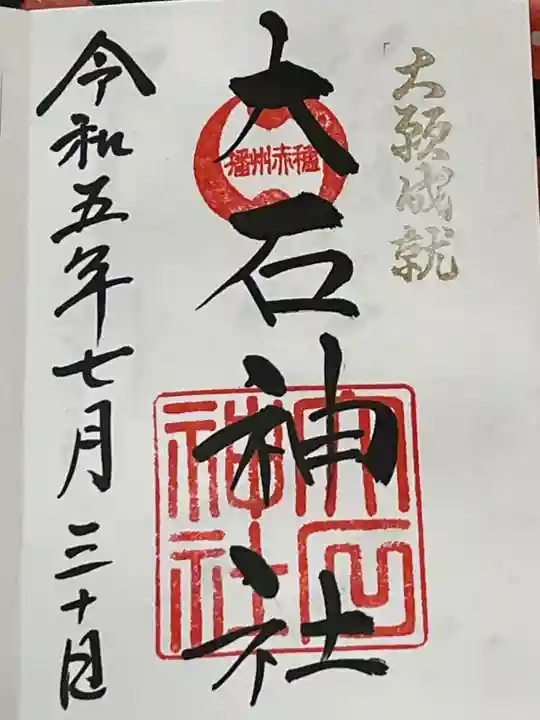 大願成就
大石神社
播州赤穂
大石
神社
令和五年七月三十日